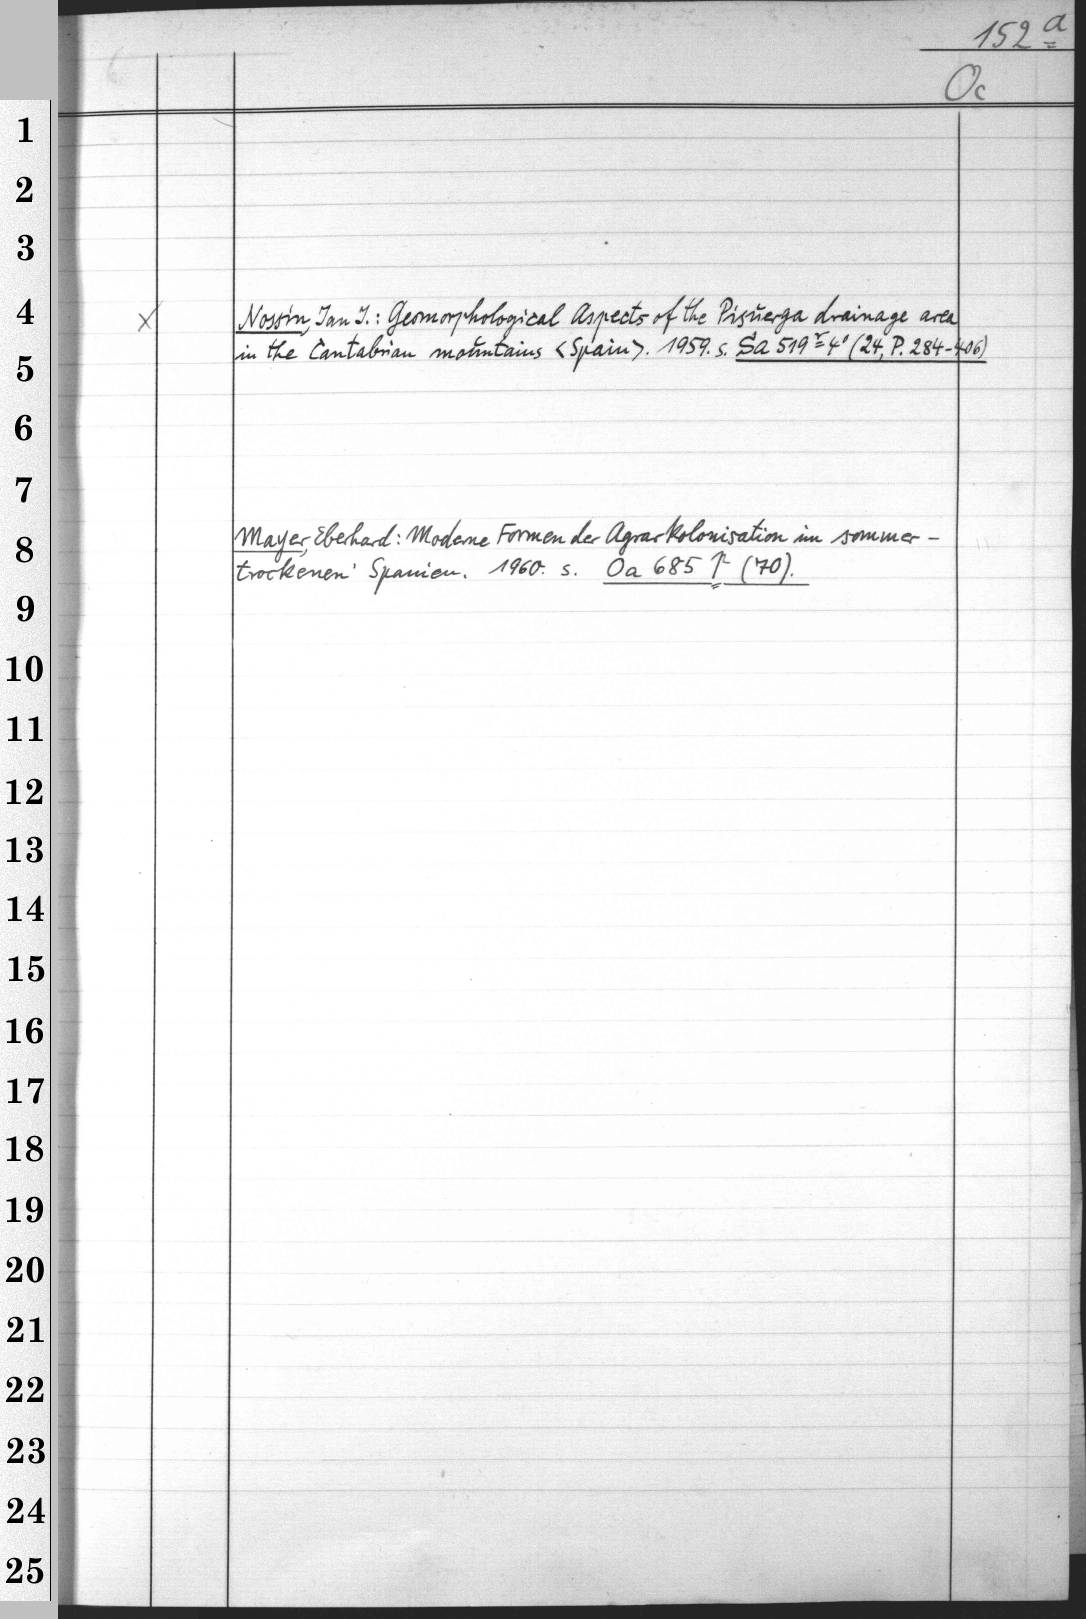 152 a
Oc
1
2
3
4
X Nossin, Jan J.: Geomorphological Aspects of the Pisuerga drainage area
in the Cantabrian mountains <Spain>. 1959. s. Sa 519 r 4° (24, P. 284-406)
5
6
7
8
Mayer, Eberhard: Moderne Formen der Agrarkolonisation im sommer-
trockenen Spanien. 1960. s. Oa 685 (70).
9
10
11
12
13
14
15
16
17
18
19
20
21
22
23
24
25